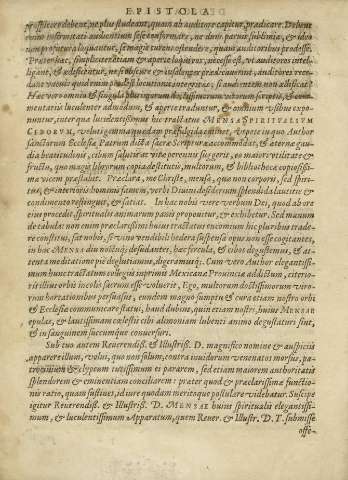 EPISTOLA
prospicere debent, ne plus studeant, quam ab auditore capitur, prædicare. Debent
enim infirmitati audientium sese conformare, ne dum parvis sublimia, & ideo
non profutura loquantur, se magis curent ostendere, quam auditoribus prodesse.
& quam simpliciter etiam & aperte
Hæc vero omnia & singula
mentariis luculenter & aperte traduntur, & omnium visibus expo-
nuntur, inter quæ luculentissimus hic tractatus MENSA SPIRITVALIVM
CIBORVM, veluti gemma quædam præfulgida enitet, vtpote in quo Author
sanctorum Ecclesiæ Patrum dicta sacræ Scripturæ accommodat, & æternæ gau-
dia beatitudinis, cibum salutis ac vitæ perennis suggerit, eo maiore vtilitate &
fructu, quo magis librorum copia destitutis, multorum, & bibliothecæ copiosissi-
mæ vicem præstabit. Præclara, me Christe, mensa, quæ non corporis, sed spiri-
tus, & interioris hominis famem, verbi Divini desiderium splendida lautitie &
condimento restinguit, & satiat. In hac nobis vere verbum Dei, quod ab ore
eius procedit, spiritualis animarum panis proponitur, & exhibetur. Sed manum
de tabula: non enim præclarissimi huius tractatus encomium hic pluribus tra-
dere constitui, sat nobis, si vino vendibili hedera suspensa opus non esse cogitantes,
in hac MENSA diu nobis desudantes, hæc fercula, & cibos degustemus, & at-
tenta meditatione piè deglutiamus, digeramusque. Cum vero Author elegantissi-
mum hunc tractatum collegiis suprimis Mexicanæ Provinciæ addictum, citerio-
ris illius orbis incolis sacrum esse voluerit, Ego, multorum doctissimorum viro-
rum hortationibus persuasus, eundem magno sumptu & cura etiam nostro orbi
& Ecclesiæ communicare statui, haud dubius, quin etiam nostri, huius MENSAE
epulas, & lautissimam cælestis cibi alimoniam lubenti animo degustaturi sint,
& in sanguinem succumque conversuri.
Sub tuo autem Reverendiss. & Illustriss. D. magnifico nomine & auspiciis
apparere illum, volui, quo non solum, contra invidorum venenatos morsus, pa-
trocinium & clypeum tutissimum ei pararem, sed etiam maiorem authoritatis
splendorem & eminentiam conciliarem: præter quod & præclarissimæ functio-
nis ratio, quam sustines, id iure quodam meritoque postulare videbatur. Suscipe
igitur Reverendiss. & Illustriss. D. MENSAE huius spiritualis elegantissi-
mum, & luculentissimum Apparatum, quem Rever. & Illustr. D. T. submisse
offe-